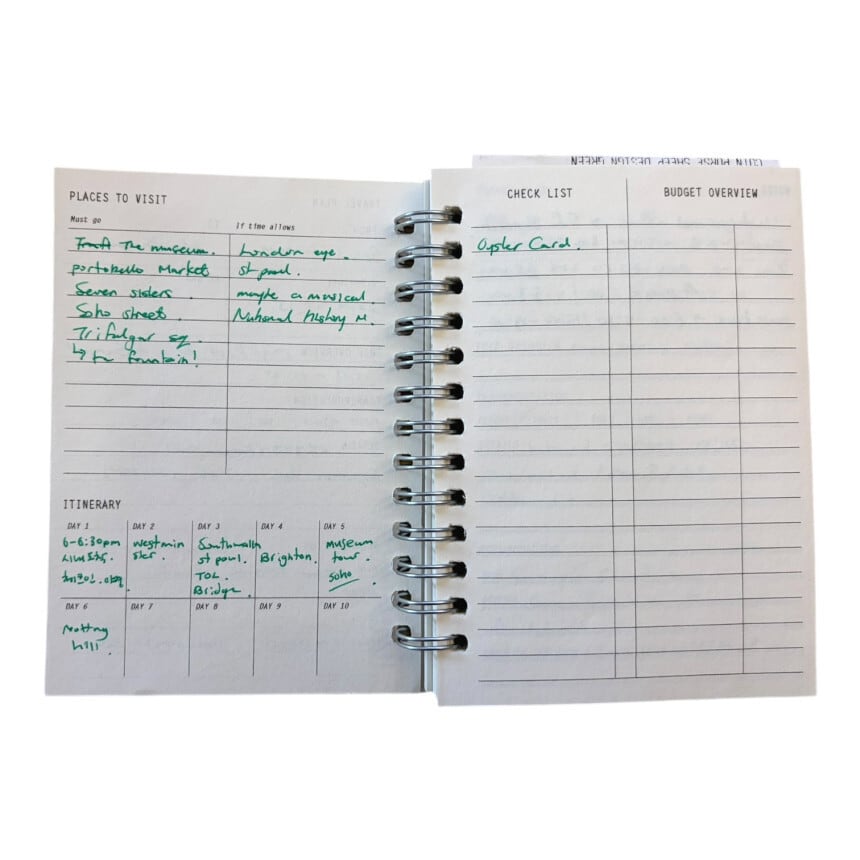 COIN PURSE SHEEP DESIGN GREEN
PLACES TO VISIT
Must go
If time allows
The museum.
London eye.
portobello Market
st paul.
Seven sisters.
maybe a musical.
Soho streets.
National History M.
Trifalgar sq.
↳ the fountain!
ITINERARY
DAY 1
DAY 2
DAY 3
DAY 4
DAY 5
6-6:30pm
시내도착.
체크인.
westmin
ster.
Southwalk
st paul.
TOL.
Bridge.
Brighton.
Museum
tour.
soho
DAY 6
DAY 7
DAY 8
DAY 9
DAY 10
Notting
hill.
CHECK LIST
BUDGET OVERVIEW
Oyster Card.